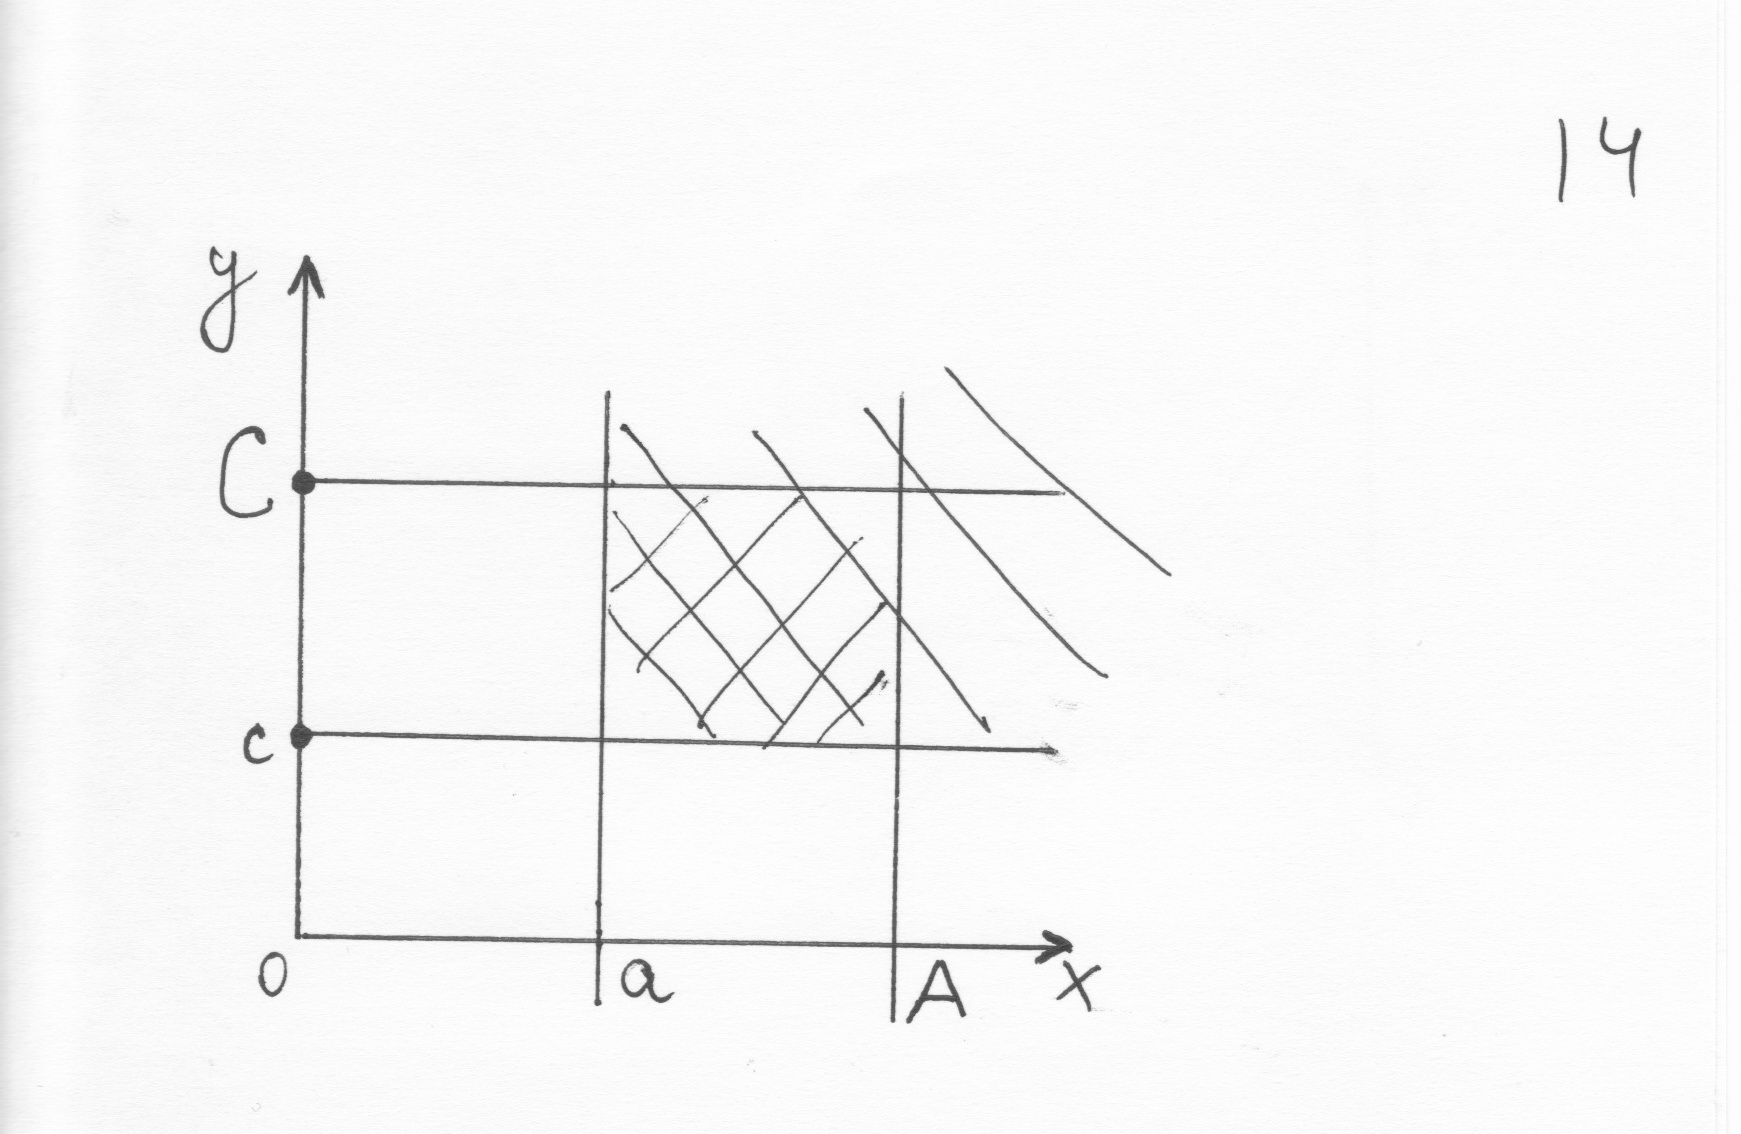 14
y
C
c
0
a
A
x